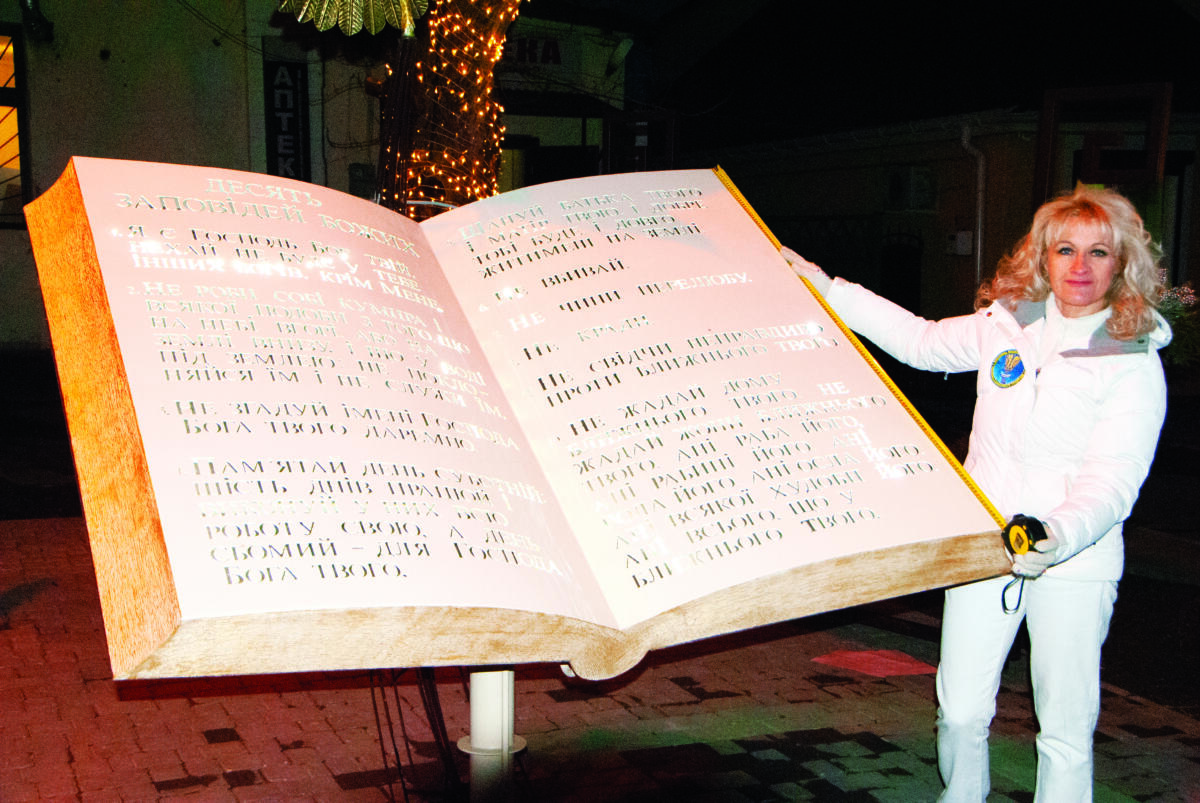 АПТЕК
ЕКА
ДЕСЯТЬ
ЗАПОВІДЕЙ БОЖИХ
1. Я Є ГОСПОДЬ БОГ ТВІЙ.
НЕХАЙ НЕ БУДЕ У ТЕБЕ
ІНШИХ БОГІВ, КРІМ МЕНЕ.
2. НЕ РОБИ СОБІ КУМИРА І
ВСЯКОЇ ПОДОБИ З ТОГО, ЩО
НА НЕБІ ВГОРІ АБО НА
ЗЕМЛІ ВНИЗУ, І ЩО У ВОДІ
ПІД ЗЕМЛЕЮ, НЕ ПОКЛО-
НЯЙСЯ ЇМ І НЕ СЛУЖИ ЇМ.
НЕ ЗГАДУЙ ІМЕНІ ГОСПОДА
БОГА ТВОГО ДАРЕМНО.
ПАМ'ЯТАЙ ДЕНЬ СУБОТНІЙ:
ШІСТЬ ДНІВ ПРАЦЮЙ І
ВИКОНУЙ У НИХ ВСЮ
РОБОТУ СВОЮ, А ДЕНЬ
СЬОМИЙ – ДЛЯ ГОСПОДА
БОГА ТВОГО.
ШАНУЙ БАТЬКА ТВОГО
І МАТІР ТВОЮ, І ДОБРЕ
ТОБІ БУДЕ, І ДОВГО
ЖИТИМЕШ НА ЗЕМЛІ
НЕ ВБИВАЙ.
НЕ ЧИНИ ПЕРЕЛЮБУ.
НЕ КРАДИ
НЕ СВІДЧИ НЕПРАВДИВО
ПРОТИ БЛИЖНЬОГО ТВОГО
НЕ ЖАДАЙ ДОМУ
БЛИЖНЬОГО ТВОГО, НЕ
ЖАДАЙ ЖОНИ БЛИЖНЬОГО
ТВОГО, АНІ РАБА ЙОГО,
АНІ РАБИНІ ЙОГО, АНІ
ВОЛА ЙОГО, АНІ ОСЛА ЙОГО,
АНІ ВСЯКОЇ ХУДОБИ ЙОГО
АНІ ВСЬОГО, ЩО У
БЛИЖНЬОГО ТВОГО.